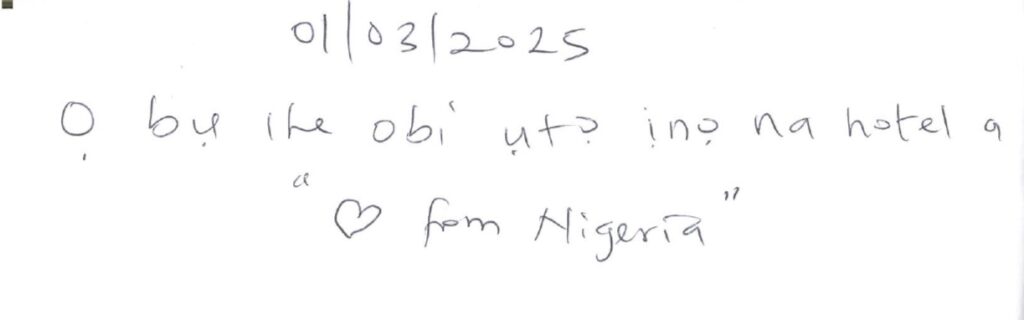 01/03/2025
Ọ bụ ihe obi ụtọ ịnọ na hotel a
"♡ from Nigeria"